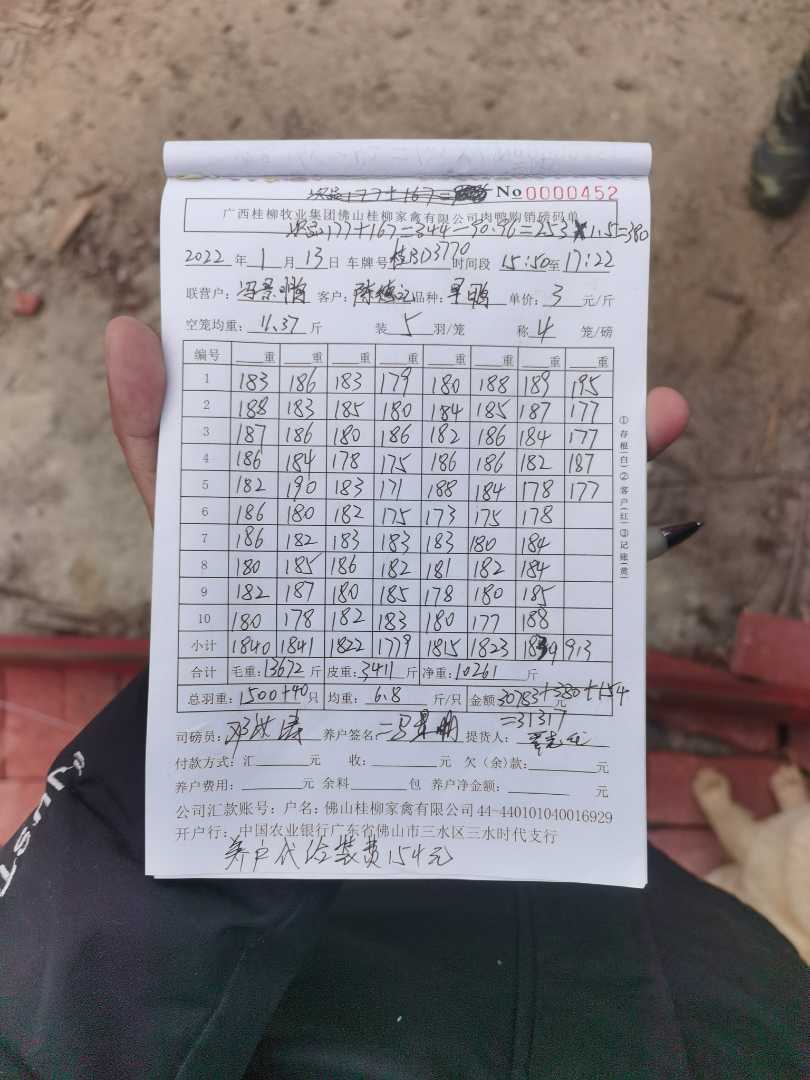 次品177+167=
No 0000452
广西桂柳牧业集团佛山桂柳家禽有限公司肉鸭购销磅码单
次品177+167=344-90.96=253×1.5=380
2022年1月13日 车牌号 桂BD3770 时间段 15:50至17:22
联营户：冯景鹏 客户：陈德记 品种：旱鸭 单价：3元/斤
空笼均重：11.37斤 装5羽/笼 称4笼/磅
编号 重 重 重 重 重 重 重 重
1 183 186 183 179 180 188 189 195
2 188 183 185 180 184 185 187 177
3 187 186 180 186 182 186 184 177
4 186 184 178 175 186 186 182 187
5 182 190 183 171 188 184 178 177
6 186 180 182 175 173 175 178
7 186 182 183 183 183 180 184
8 180 185 186 182 181 182 184
9 182 187 180 185 178 180 185
10 180 178 182 183 180 177 188
小计 1840 1841 1822 1779 1815 1823 1839 913
合计 毛重：13672斤 皮重：3411斤 净重：10261斤
总羽重：1500+40只 均重：6.8斤/只 金额30783+380+154元
=31317
司磅员： 养户签名：冯景鹏 提货人：
付款方式：汇 元 收： 元 欠(余)款： 元
养户费用： 元 余料 包 养户净金额： 元
公司汇款账号：户名：佛山桂柳家禽有限公司 44-440101040016929
开户行：中国农业银行广东省佛山市三水区三水时代支行
养户代给装费154元
①存根(白)②客户(红)③记账(黄)